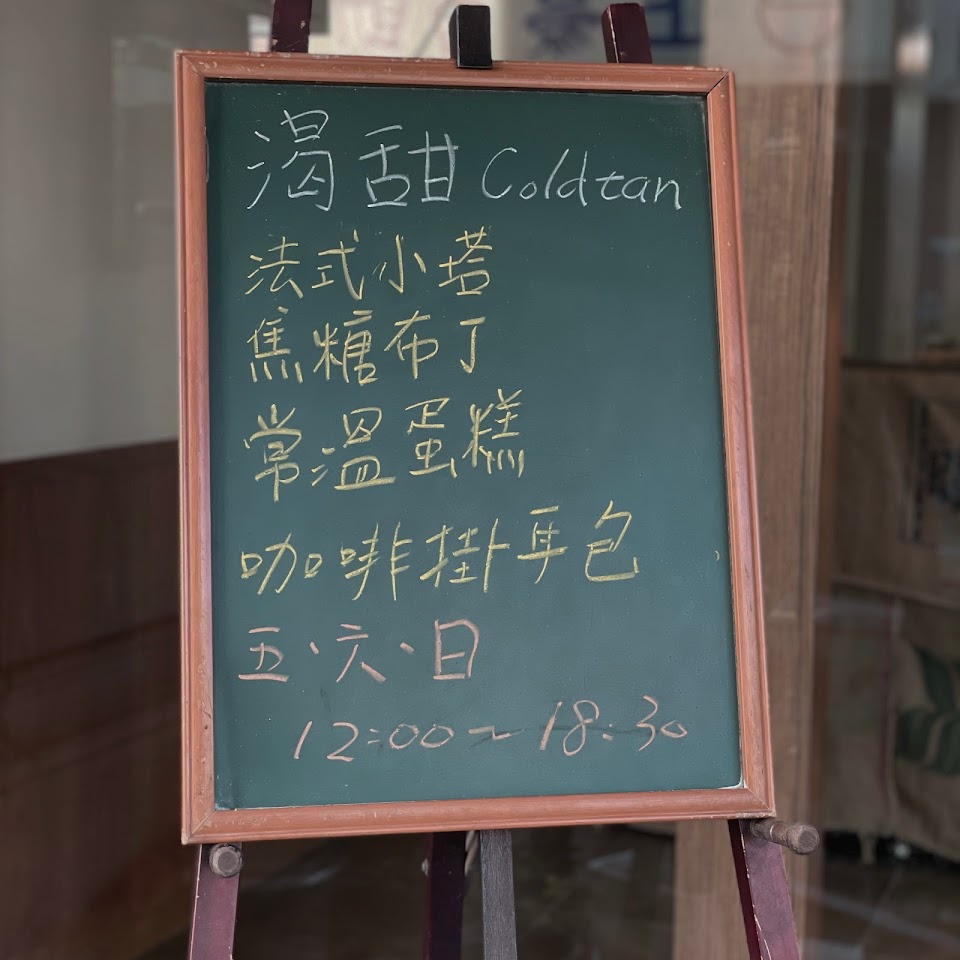 渴甜 Coldtan
法式小塔
焦糖布丁
常溫蛋糕
咖啡掛耳包
五、六、日
12:00~18:30